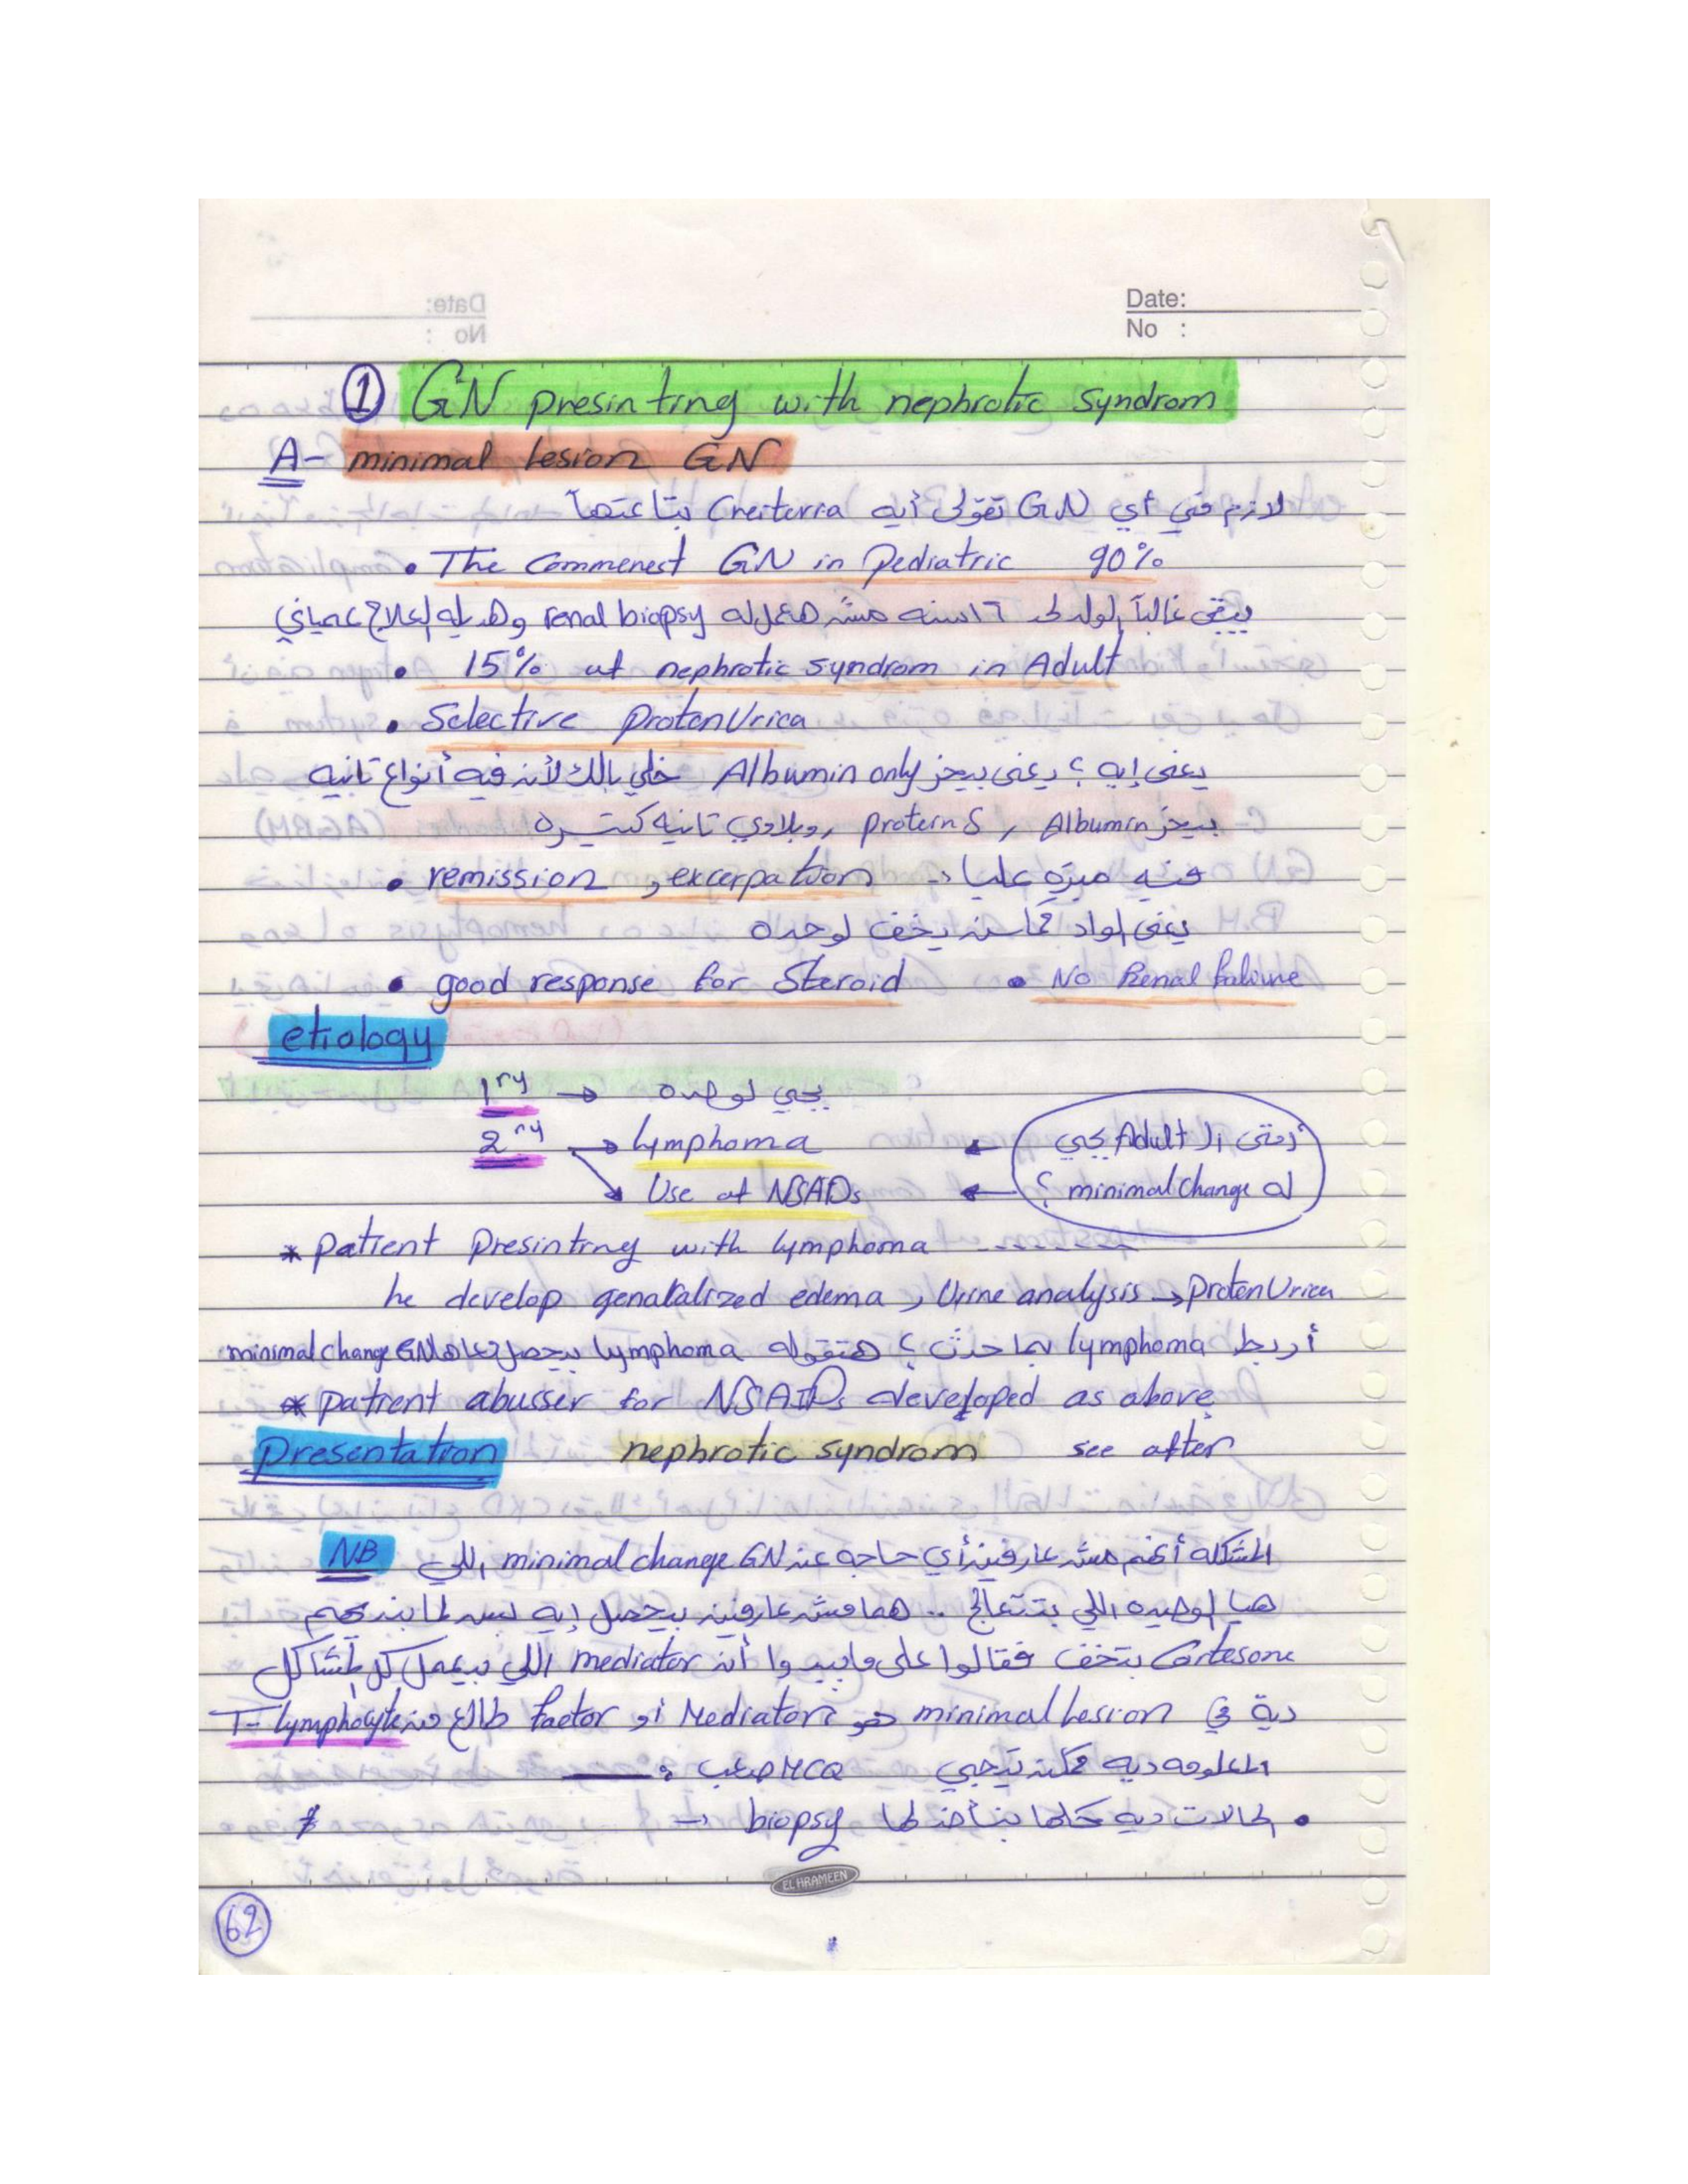 Date:
No :
① GN presinting with nephrotic syndrom
A- minimal lesion GN
لازم في أي GN تقولى أيه Creiterria بتاعتها
• The Commenest GN in Pediatric 90%
يبقى غالباً الولد لحد ١٦ سنه مش هاعمله renal biopsy وهديله العلاج عمياني
• 15% of nephrotic syndrom in Adult
• Selective protenUrica
يعنى إيه ؟ يعنى بيحز Albumin only خلي بالك لأنه فيه أنواع تانيه
بيحز Albumin , protein S , وبلاوي تانيه كتيره
• remission , excerpation → فيه ميزه عليا
يعنى الواد ممكن يخف لوحده
• good response for Steroid • No Renal failure
etiology
1ry → يجي لوحده
2ry → lymphoma ← أمتى الـ Adult يجي
→ Use of NSAIDs ← له minimal change ؟
* patient presinting with lymphoma --------
he develop genaralized edema , Urine analysis → protenUrica
أربط lymphoma بما حدث ؟ هتقوله lymphoma بيحصل معاها minimal change GN
* patient abusser for NSAIDs developed as above
Presentation nephrotic syndrom see after
NB المشكله أنهم مش عارفين أي حاجه عن minimal change GN اللي
هيا الوحيده اللي بتتعالج .. هما مش عارفين بيحصل إيه بس لما بنديهم
Cortesone بتخف فقالوا على مايبدوا أن mediator اللي بيعمل كل المشاكل
دية في minimal lesion هو Mediator أو factor طالع من T-lymphocyte
المعلومه ديه ممكن تيجي MCQ صعب
• الحالات ديه كلها بناخد لها biopsy →
EL HRAMEEN
62